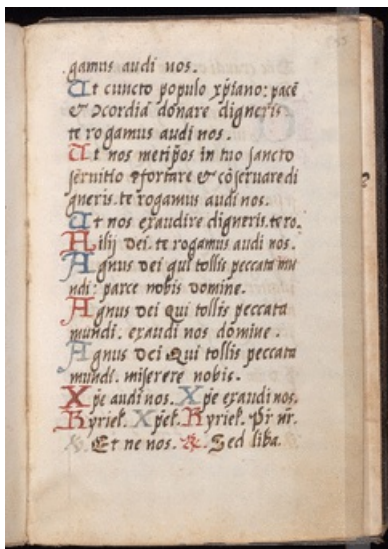 gamus audi nos.
Ut cuncto populo xp̃iano: pacẽ
& ↄcordiã donare digneris
te rogamus audi nos.
Ut nos metip̃os in tuo sancto
seruitio ↄfortare & cõseruare di
gneris. te rogamus audi nos.
Ut nos exaudire digneris. te ro.
Filij dei. te rogamus audi nos.
Agnus dei qui tollis peccata mu
ndi: parce nobis domine.
Agnus dei Qui tollis peccata
mundi. exaudi nos domine.
Agnus dei Qui tollis peccata
mundi. miserere nobis.
Xp̃e audi nos. Xp̃e exaudi nos.
Kyriel̃. Xp̃el̃. Kyriel̃. Pr̃ nr̃.
℣. Et ne nos. ℟. Sed liba.